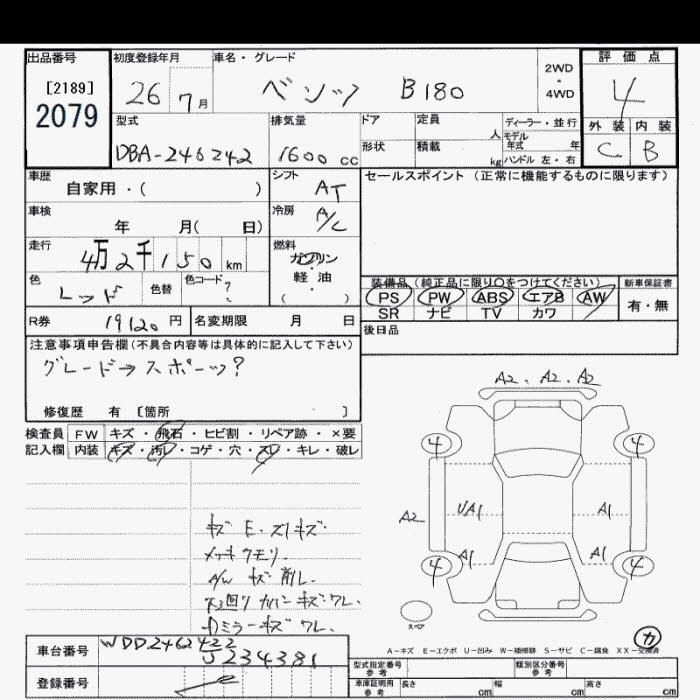 出品番号
[2189]
2079
初度登録年月
26 7月
車名・グレード
ベンツ B180
2WD
・
4WD
評価点
4
外装 内装
C B
型式
DBA-246242
排気量
1600cc
ドア
定員 人
形状
積載 kg
ディーラー・並行
モデル年式 年
ハンドル 左・右
車歴
自家用・( )
シフト
AT
セールスポイント (正常に機能するものに限ります)
車検
年 月( 日)
冷房
A/C
走行
4万2千150km
燃料
ガソリン
軽・油
( )
色
レッド
色替
色コード
?
装備品 (純正品に限り○をつけてください)
PS PW ABS エアB AW
SR ナビ TV カワ
新車保証書
有・無
R券 19120円
名変期限 月 日
後日品
注意事項申告欄(不具合内容等は具体的に記入して下さい)
グレード→スポーツ?
修復歴 有 [箇所 ]
検査員記入欄
FW キズ・飛石・ヒビ割・リペア跡・×要
内装 キズ・汚レ・コゲ・穴・スレ・キレ・破レ
キズ E・スリキズ
メッキクモリ.
A/W キズ 削レ.
下回リ カバーキズワレ.
ドミラーキズ ワレ.
A2, A2, A2
4 4
A2 UA1 A1
A1 A1
4 4
スペア
カ
A-キズ E-エクボ U-凹み W-補修跡 S-サビ C-腐食 XX-交換済
車台番号
WDD2462422
J234381
登録番号
型式指定番号
参考
類別区分番号
参考
車庫証明用
参考
長さ cm 幅 cm 高さ cm